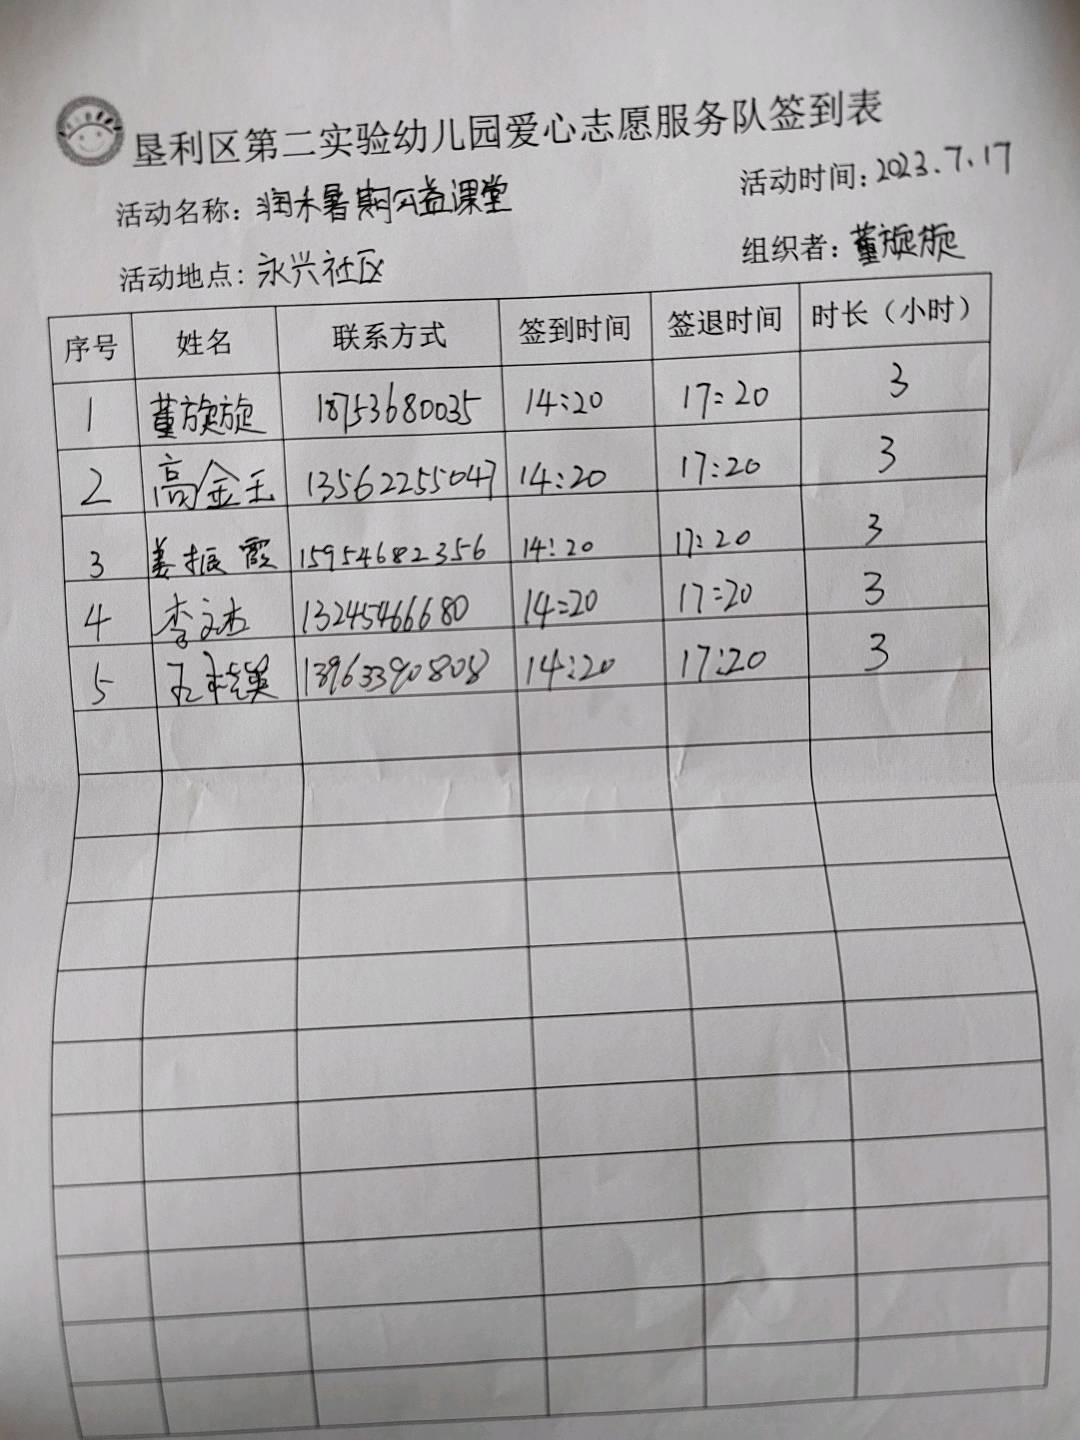 垦利区第二实验幼儿园爱心志愿服务队签到表
活动名称：润禾暑期公益课堂 活动时间：2023.7.17
活动地点：永兴社区 组织者：董旋旋
序号 姓名 联系方式 签到时间 签退时间 时长（小时）
1 董旋旋 18753680035 14:20 17:20 3
2 高金玉 13562255047 14:20 17:20 3
3 姜振霞 15954682356 14:20 17:20 3
4 李文杰 13245466680 14:20 17:20 3
5 13963390808 14:20 17:20 3